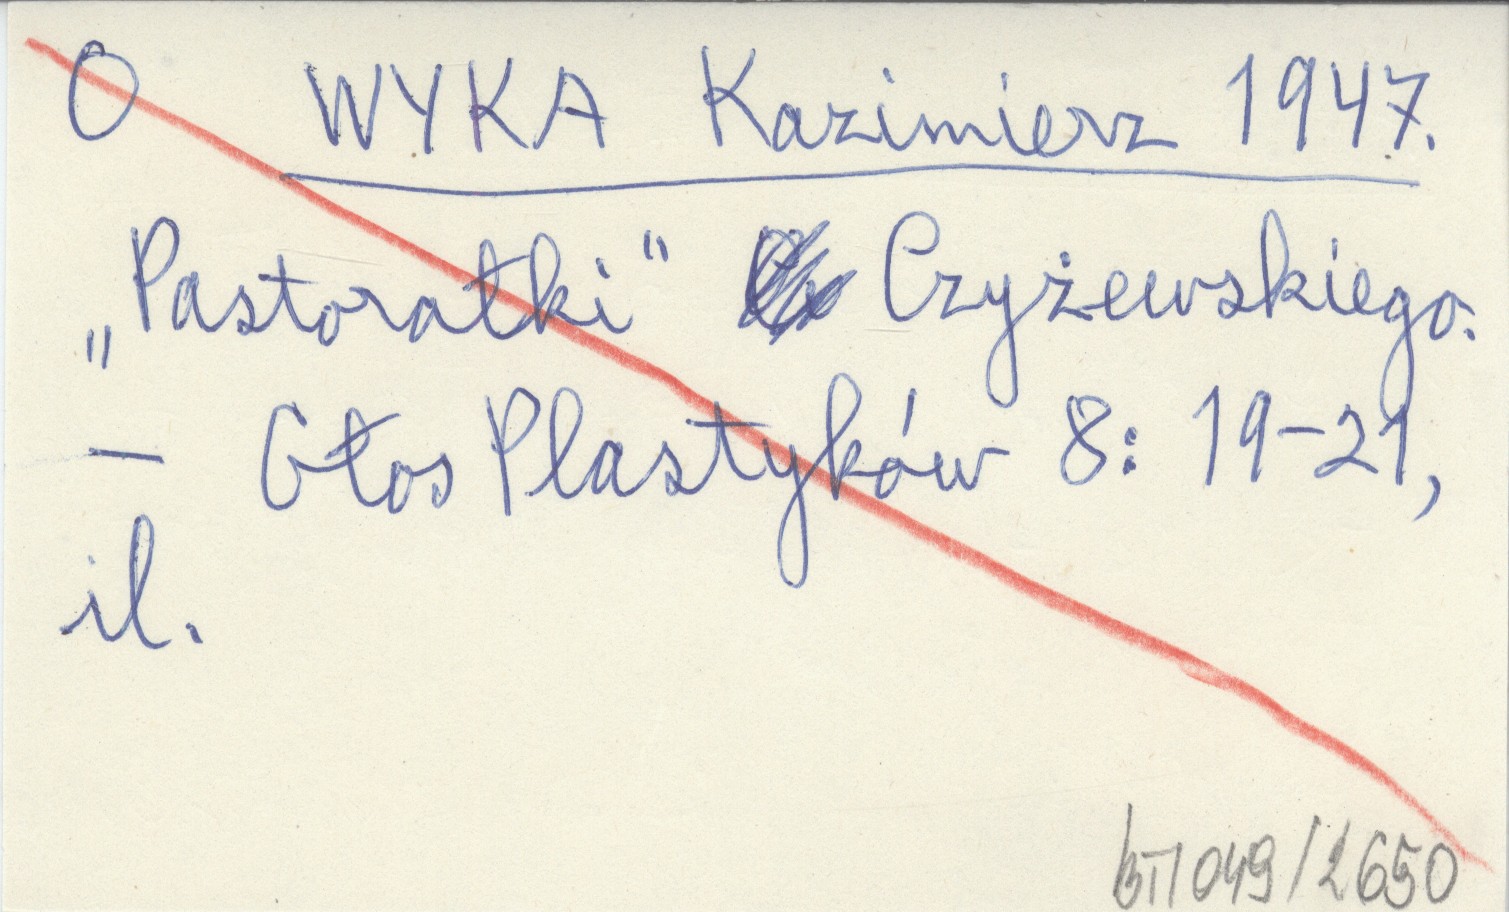 O WYKA Kazimierz 1947.
„Pastorałki" Czyżewskiego.
— Głos Plastyków 8: 19-21,
il.
049/2650